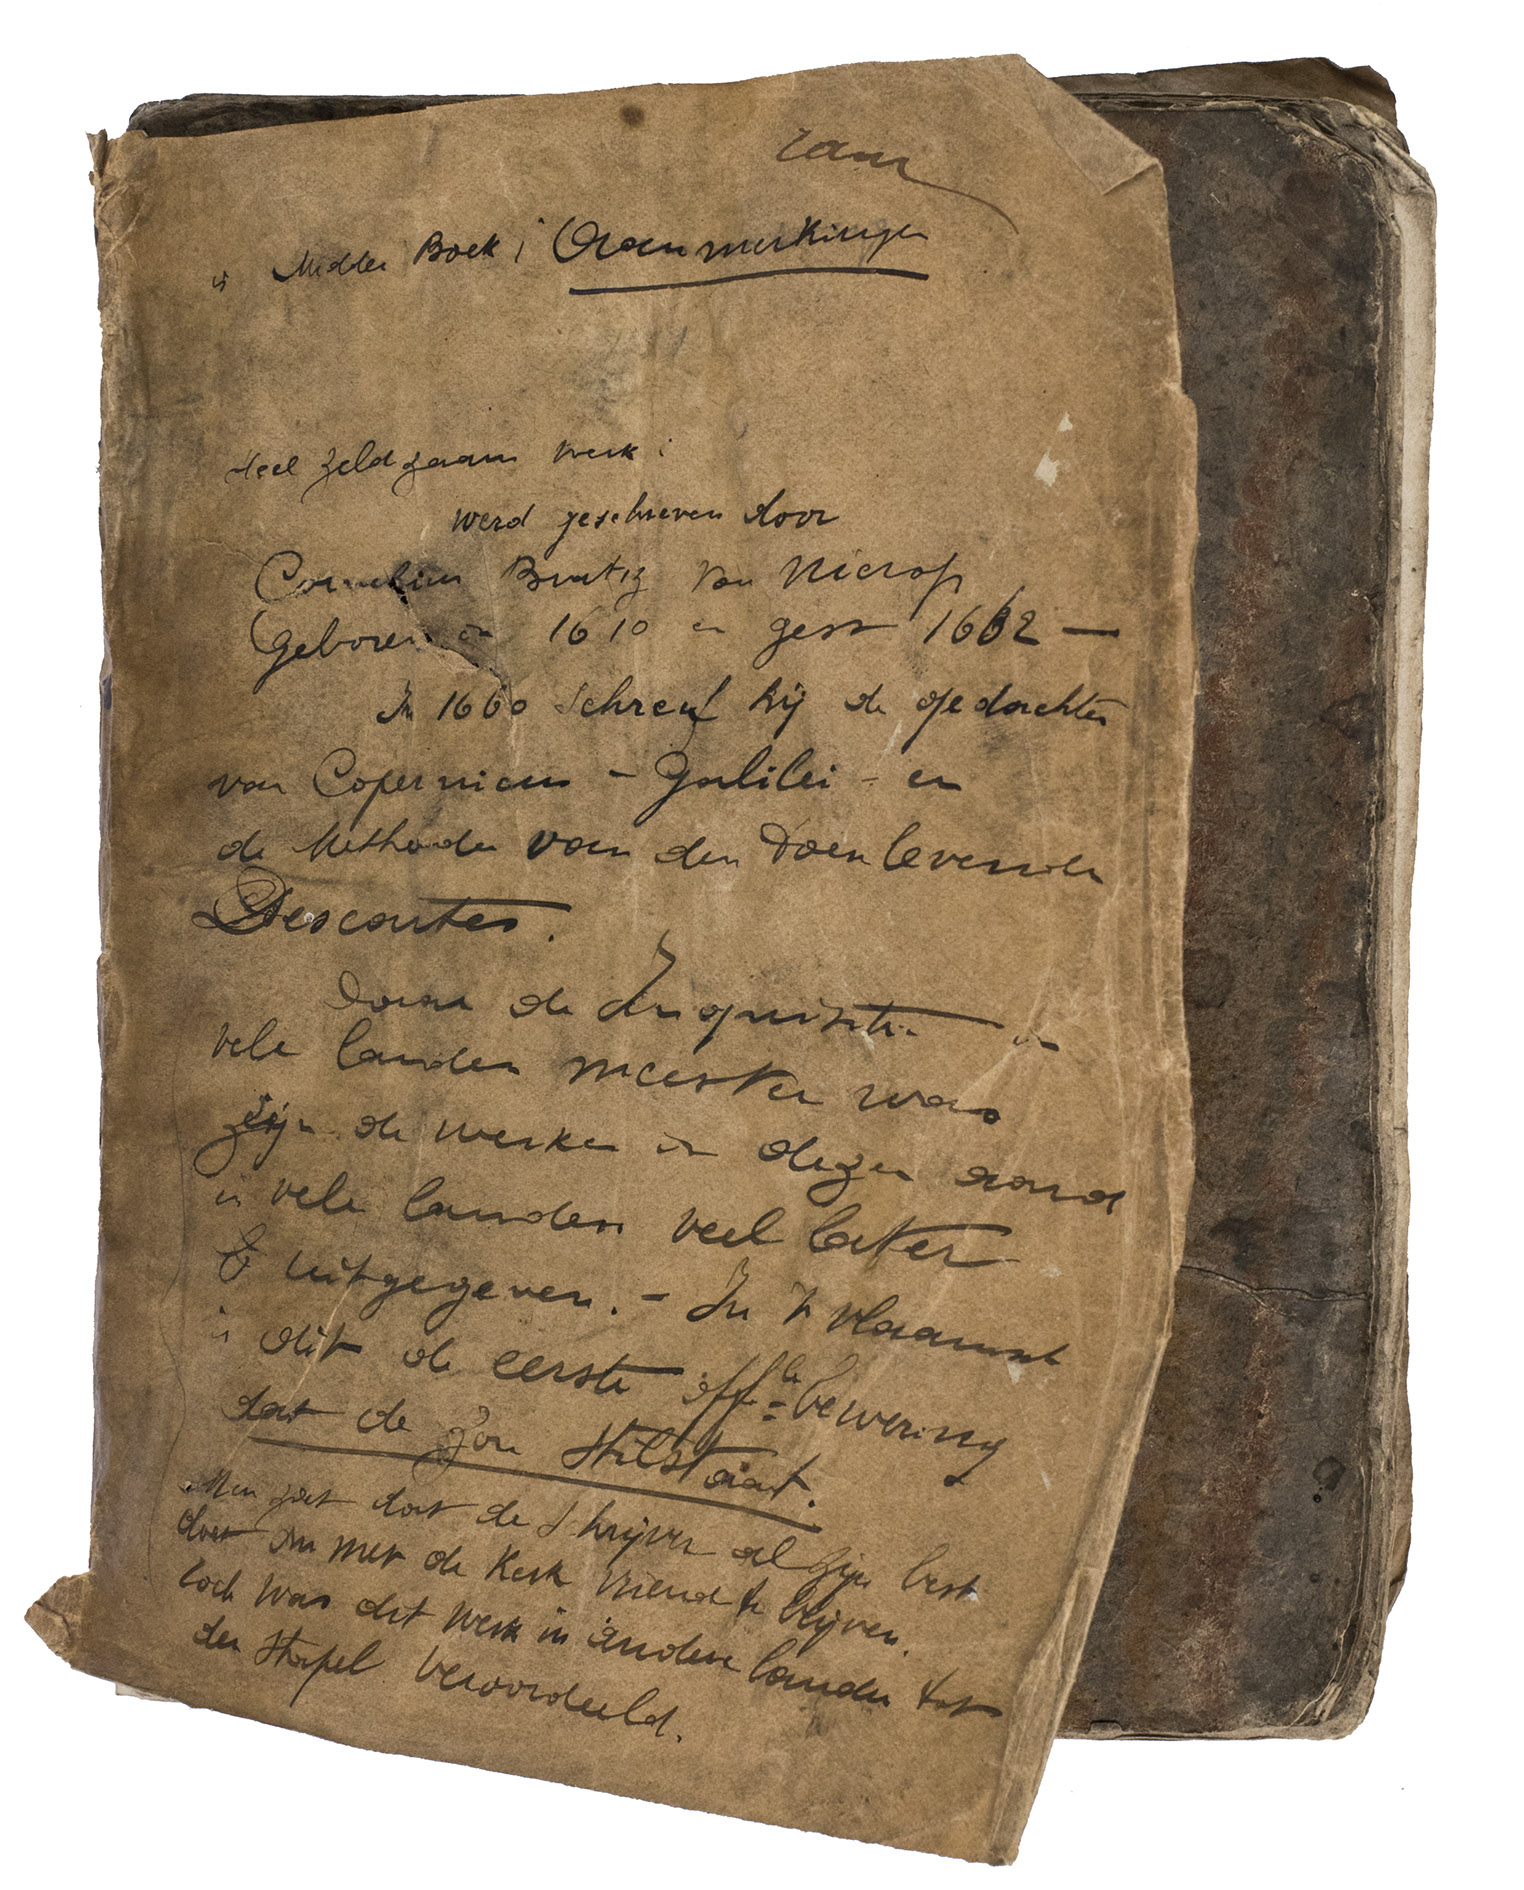 zaam
in Midden Boek; Aanmerkingen
Heel zeldzaam werk:
werd geschreven door
Cornelius Bruntz Van Nierop
Geboren in 1610 en gest 1662 —
In 1660 schreef hij de gedachten
van Copernicus - Galilei - en
de Methode van den toen levende
Descartes.
Daar de Inquisitie in
vele landen meester was
zijn de werken in dezen aard
in vele landen veel later
uitgegeven. - In 't vlaamsch
is dit de eerste off.le bewering
dat de zon stilstaat.
Men ziet dat de schrijver al zijn best
doet om met de Kerk vriend te blijven.
toch was dit werk in andere landen tot
den stapel veroordeeld.